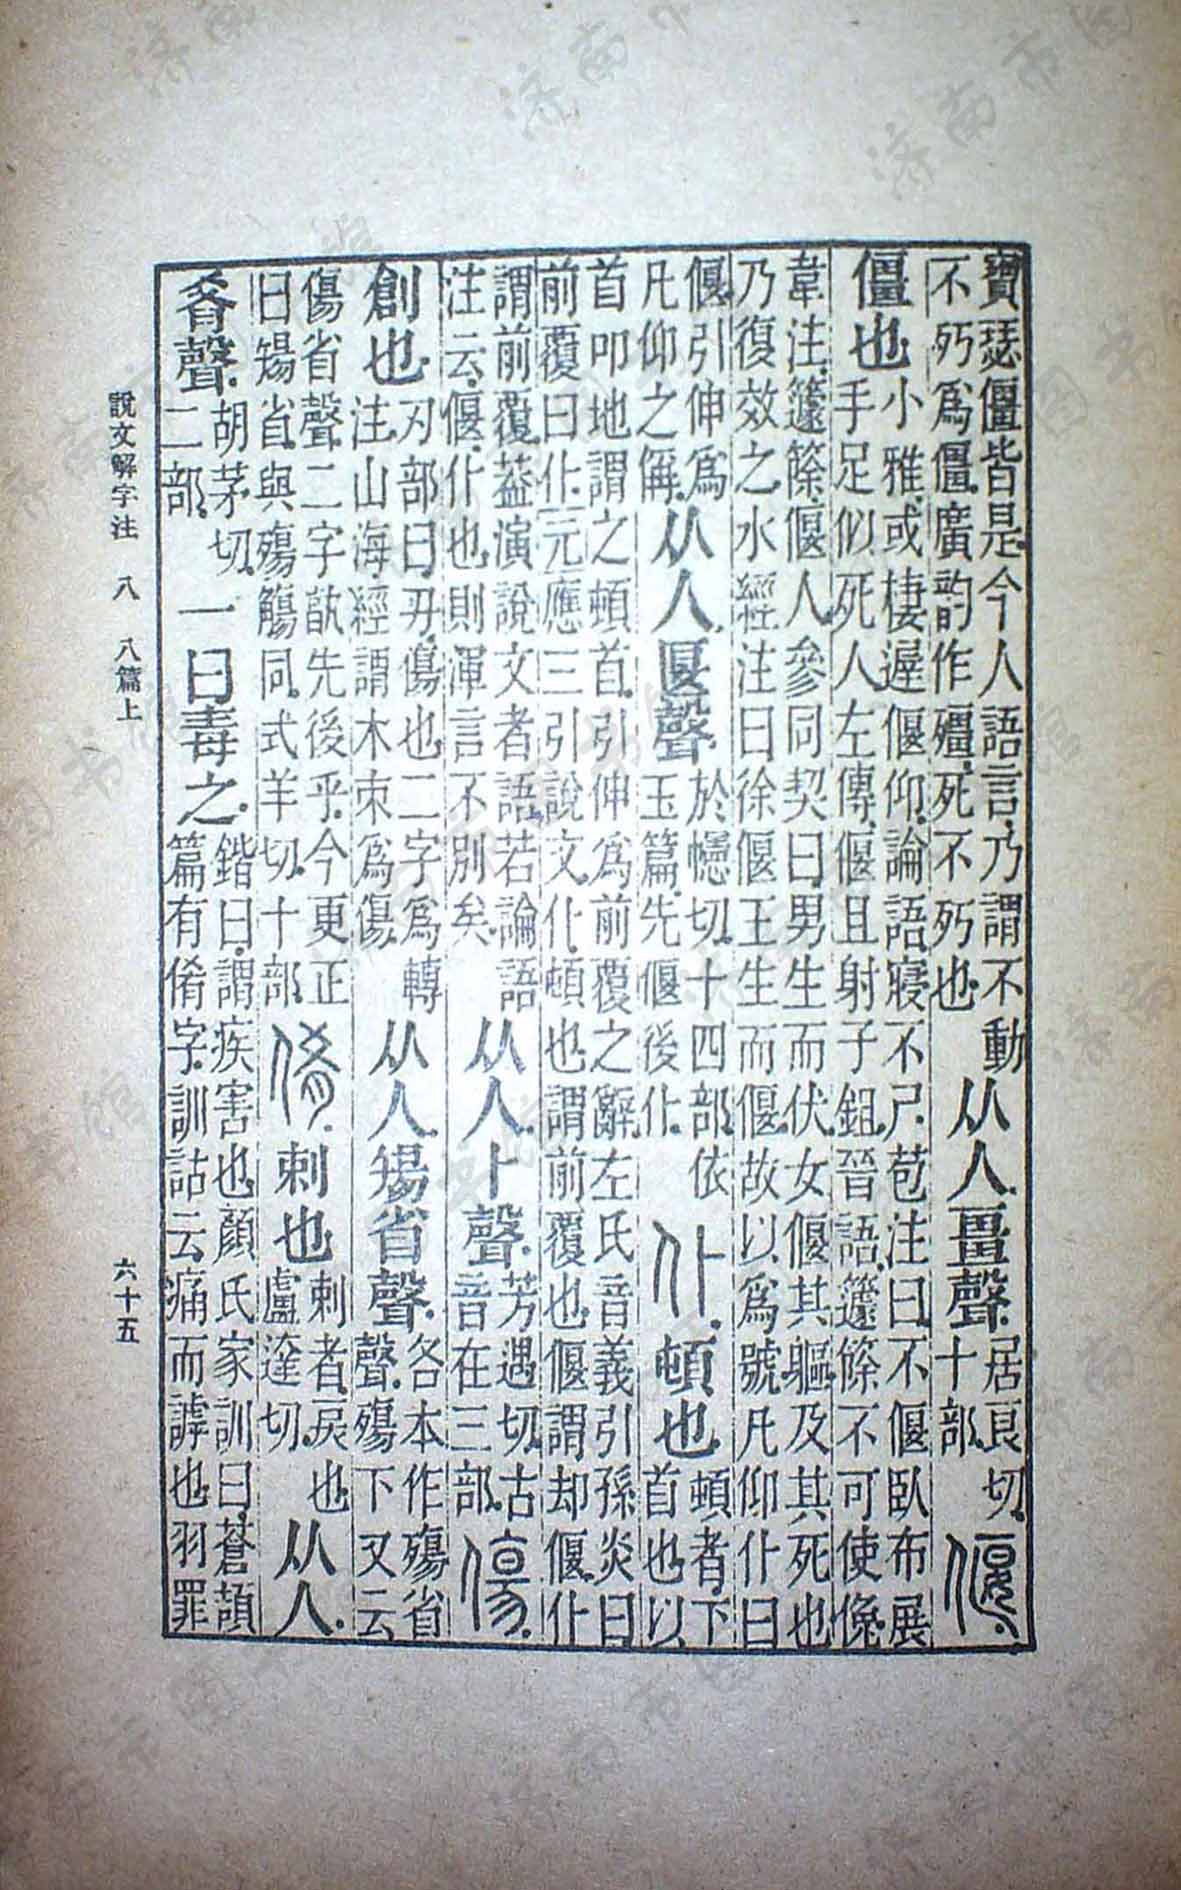 寶瑟僵皆是今人語言乃謂不動
不朽爲僵廣韵作殭死不朽也
从人畺聲
居良切
十部
偃
僵也
小雅或棲遲偃仰論語寢不尸苞注曰不偃臥布展
手足似死人左傳偃且射子鉏晉語籧篨不可使俛
韋注籧篨偃人參同契曰男生而伏女偃其軀及其死也
乃復效之水經注曰徐偃王生而偃故以爲號凡仰仆曰
偃引伸爲
凡仰之偁
从人匽聲
於幰切十四部依
玉篇先偃後仆
仆
頓也
頓者下
首也以
首叩地謂之頓首引伸爲前覆之辭左氏音義引孫炎曰
前覆曰仆元應三引說文仆頓也謂前覆也偃謂却偃仆
謂前覆葢演說文者語若論語
注云偃仆也則渾言不別矣
从人卜聲
芳遇切古
音在三部
傷
創也
刃部曰刅傷也二字爲轉
注山海經謂木朿爲傷
从人𥏻省聲
各本作殤省
聲殤下又云
傷省聲二字㪅先後乎今更正
曰𥏻省與殤觴同式羊切十部
倄
刺也
刺者戾也
盧達切
从人
肴聲
胡茅切
二部
一曰毒之
鍇曰謂疾害也顏氏家訓曰蒼頡
篇有倄字訓詁云痛而謼也羽罪
說文解字注 八 八篇上 六十五